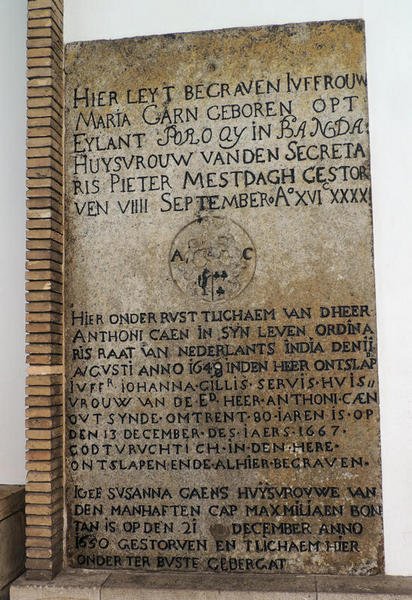 HIER LEYT BEGRAVEN IVFFROUW
MARIA GARN GEBOREN OPT
EYLANT POELO AY IN BANDA.
HUYSVROUW VANDEN SECRETA
RIS PIETER MESTDAGH GESTOR
VEN VIIII SEPTEMBER Aº XVI XXXX
A C
HIER ONDER RVST TLICHAEM VAN DHEER
ANTHONI CAEN IN SYN LEVEN ORDINA
RIS RAAT VAN NEDERLANTS INDIA DEN IJ
AVGVSTI ANNO 1648 INDEN HEER ONTSLAP
IVFFR IOHANNA·GILLIS·SERVIS·HVIS
VROUW VAN DE ED. HEER·ANTHONI·CÆN
OVT SYNDE·OMTRENT·80·IAREN·IS·OP
DEN 13 DECEMBER·DES·IAERS·1667·
GODTVRVCHTICH·IN·DEN·HERE·
ONTSLAPEN·ENDE·ALHIER·BEGRAVEN·
SUSANNA GAENS HVYSVROVWE VAN
DEN MANHAFTEN CAP MAXMILIAEN BON
TAN IS OP DEN 21 DECEMBER ANNO
1650 GESTORVEN EN TLICHAEM HIER
ONDER TER RVSTE GEBERGAT